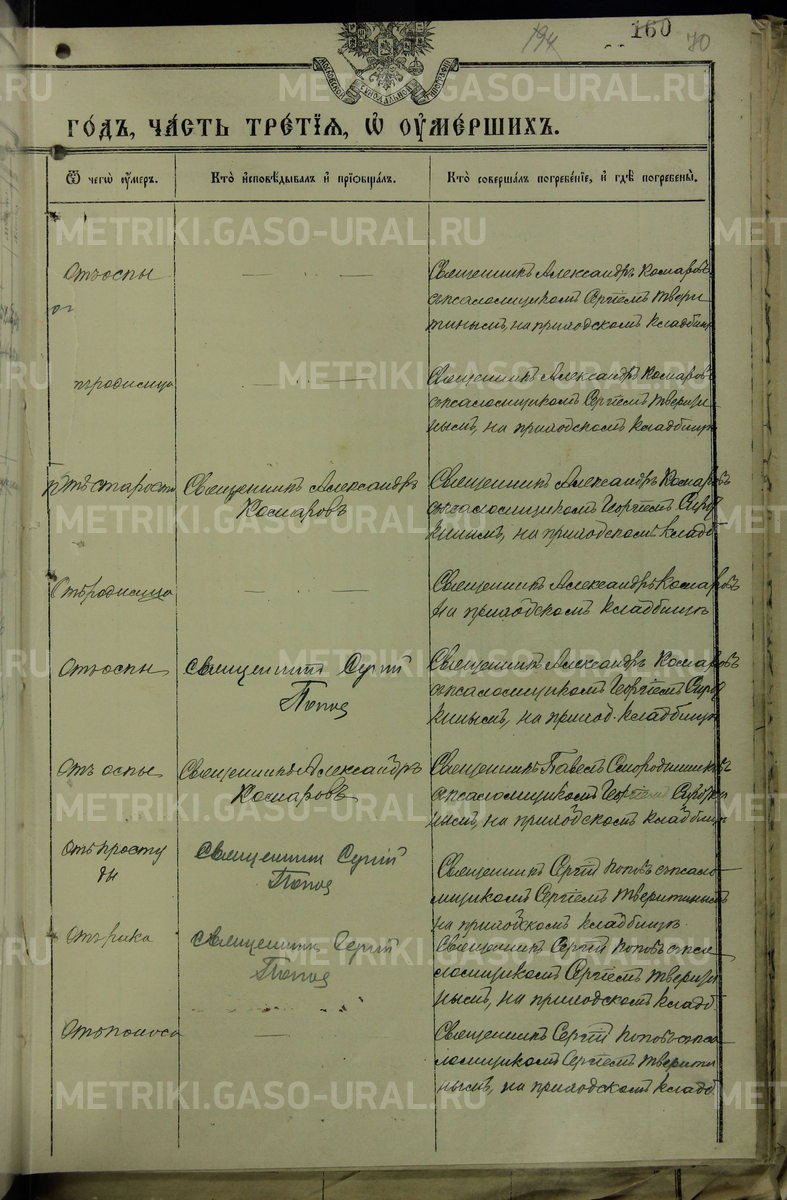 194
160
70
МОСКОВСКОЙ СѴНОДАЛЬНОЙ ТИПОГРАФІИ
ГО́ДЪ, ЧА́СТЬ ТРЕ́ТІЯ, Ѡ҆ ОУ҆МЕ́РШИХЪ.
Ѿ чегѡ̀ ᲂу҆́меръ.
Кто̀ и҆сповѣ́дывалъ и҆ прїѡбща́лъ.
Кто̀ соверша́лъ погребе́нїе, и҆ гдѣ̀ погребены̀.
Отъ оспы
Священникъ Александръ Комаровъ
съ псаломщикомъ Сергіемъ Твери
тинымъ, на приходскомъ кладбищѣ
родимца
Священникъ Александръ Комаровъ
съ псаломщикомъ Сергіемъ Твери
нымъ, на приходскомъ кладбищѣ
Отъ старости
Священникъ Александръ
Комаровъ
Священникъ Александръ Комаровъ
съ псаломщикомъ Георгіемъ
на приходскомъ кладб.
Отъ родимца
Священникъ Александръ Комаровъ
на приходскомъ кладбищѣ
Отъ оспы
Священникъ Сергій
Попов
Священникъ Александръ Комаровъ
съ псаломщикомъ Георгіемъ
на приход. кладбищѣ
Отъ оспы
Священникъ Александръ
Комаровъ
Священникъ Павелъ
съ псаломщикомъ Георгіемъ
на приходскомъ кладбищѣ
Отъ просту
ды
Священник Сергій
Попов
Священникъ Сергій Поповъ съ псало
мщикомъ Сергіемъ Тверитинымъ
на приходскомъ кладбищѣ
Отъ рака
Священник Сергій
Попов
Священникъ Сергій Поповъ съ пса
ломщикомъ Сергіемъ Твери
нымъ, на приходскомъ кладб.
Отъ поноса
Священникъ Сергій Поповъ съ пса
ломщикомъ Сергіемъ Тверити
нымъ, на приходскомъ кладб.
METRIKI.GASO-URAL.RU